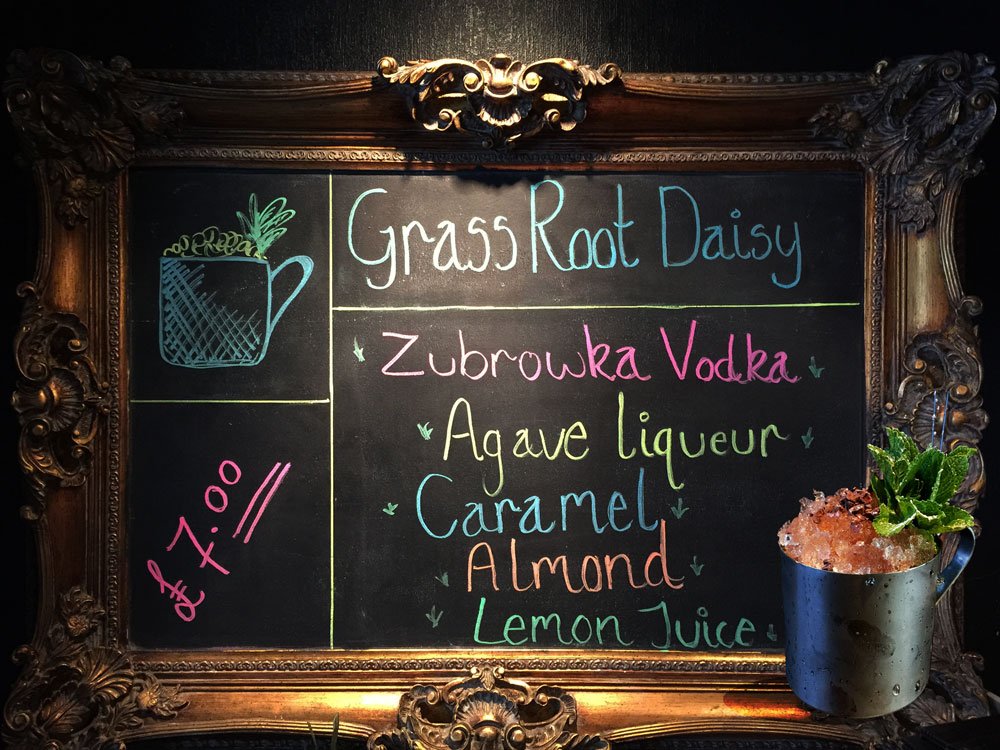 Grass Root Daisy
Zubrowka Vodka
Agave liqueur
Caramel
Almond
Lemon Juice
£7.00